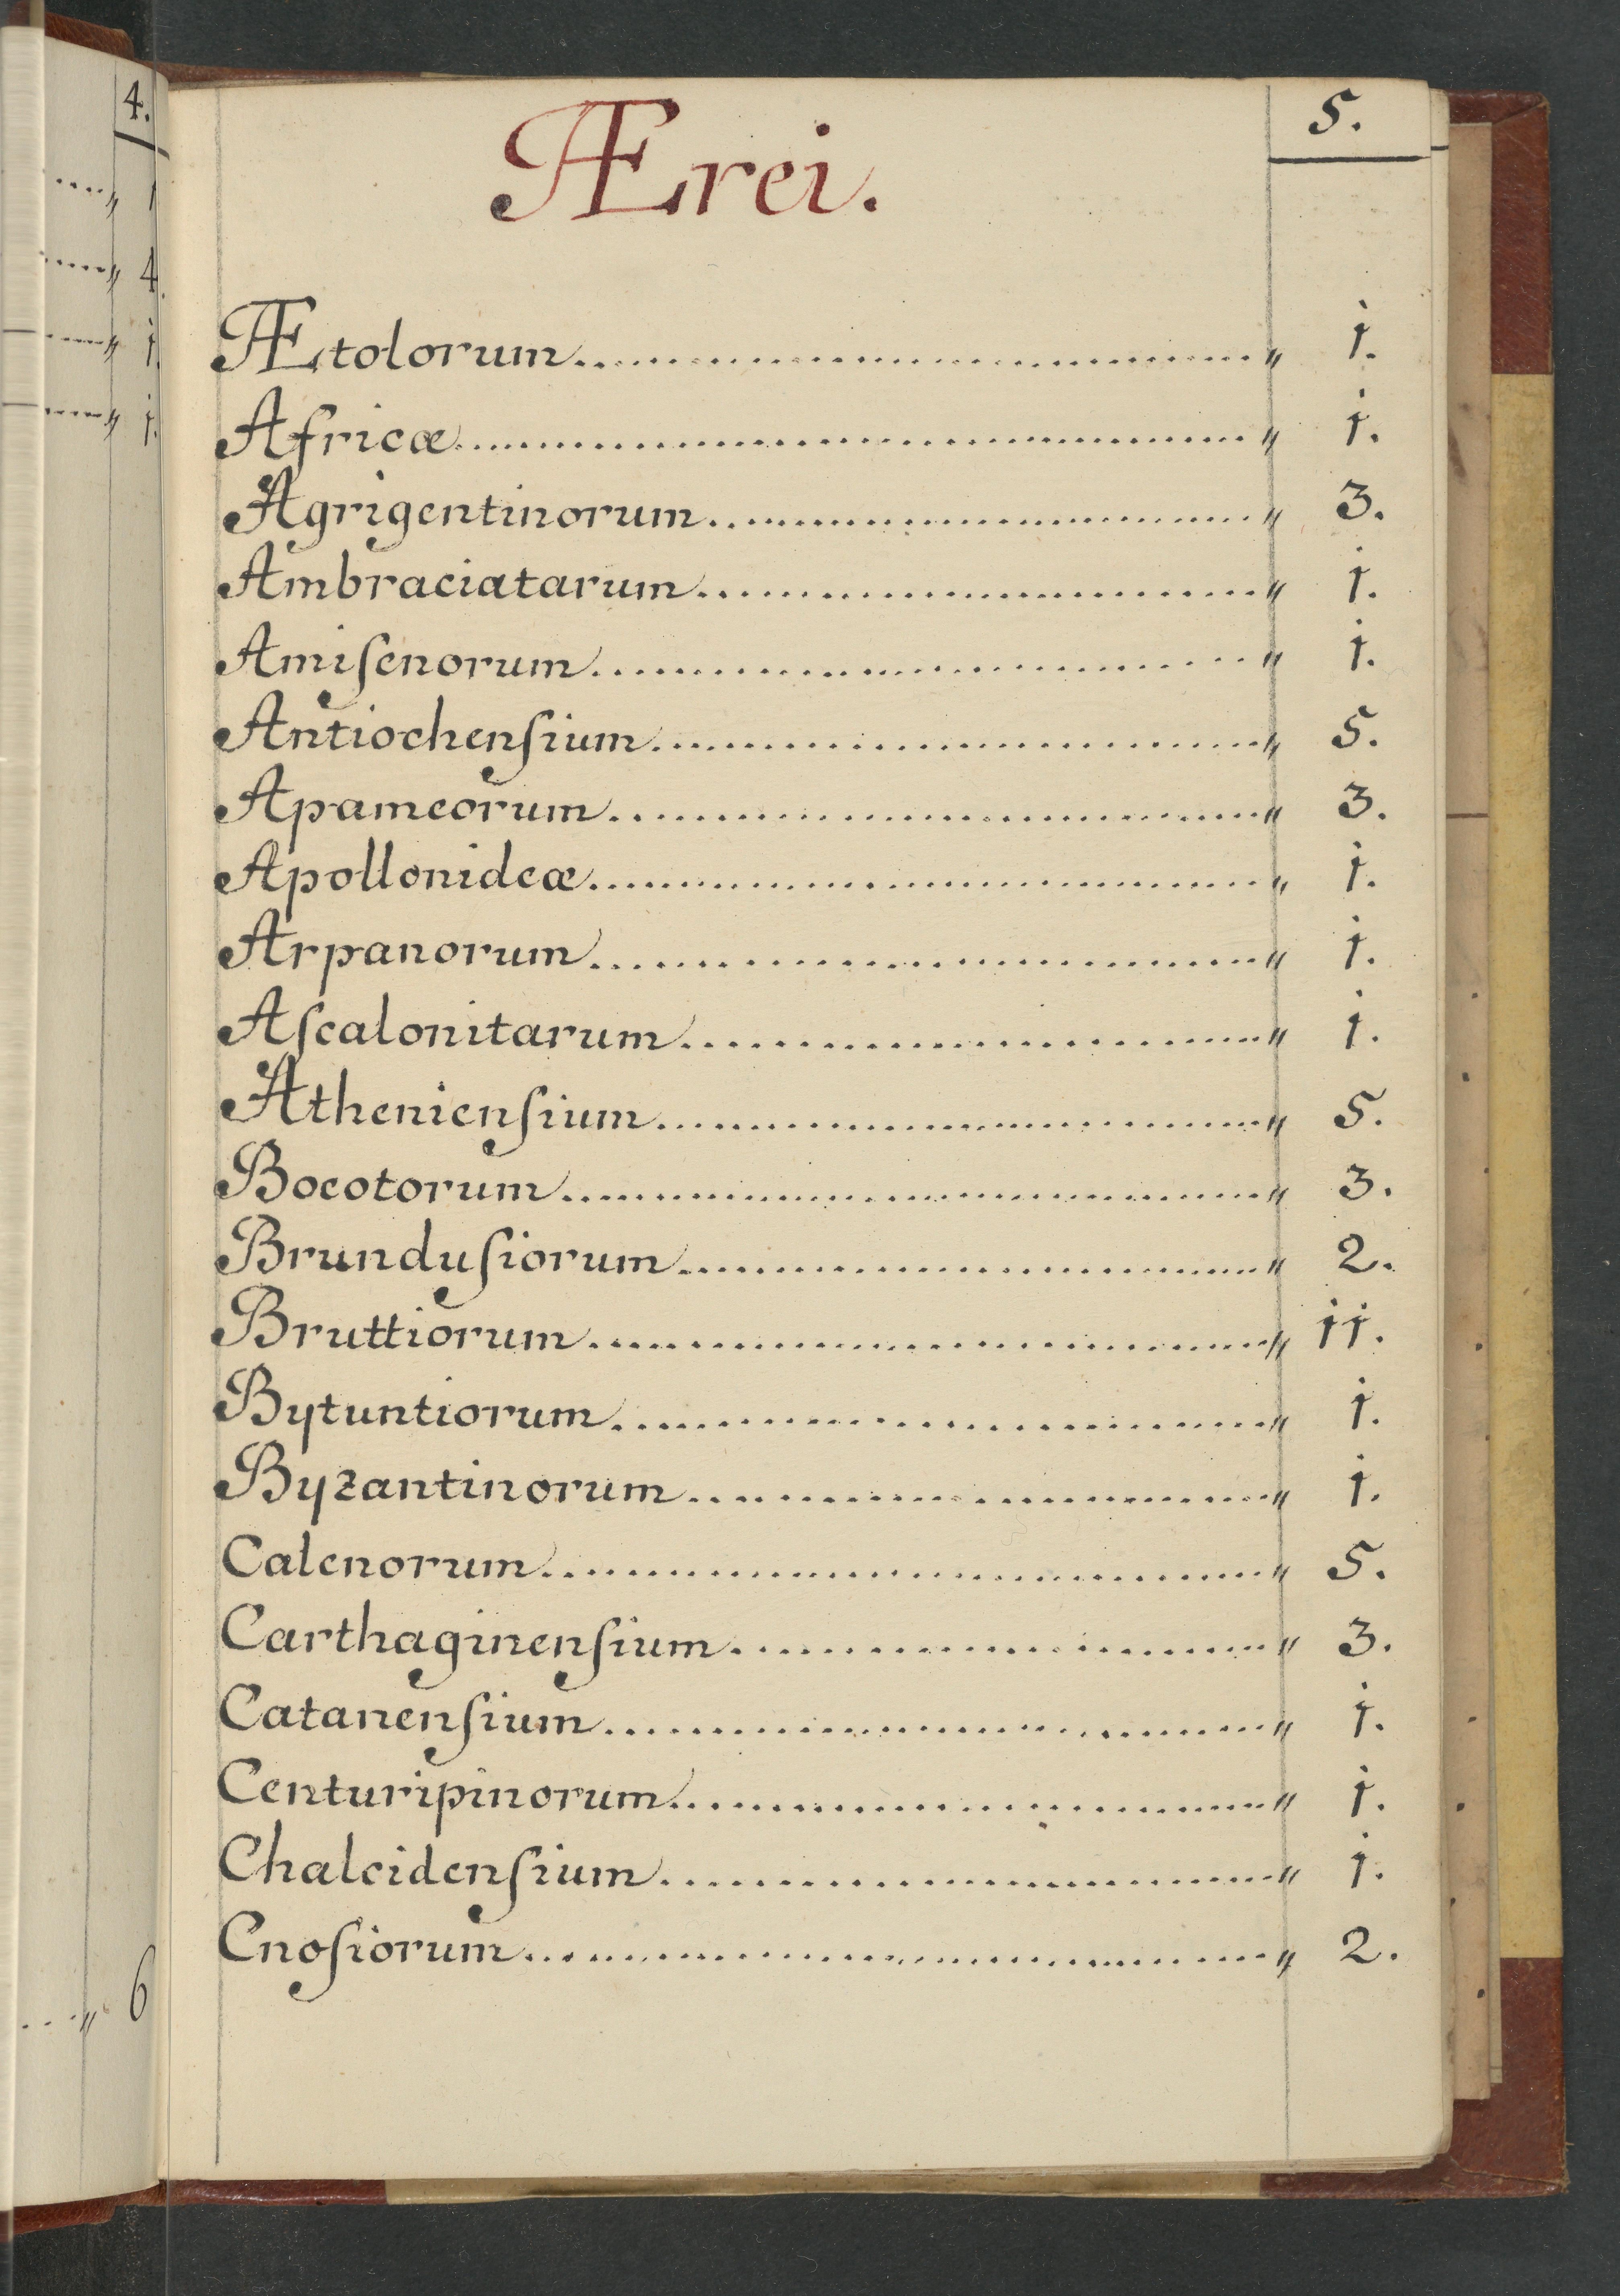 4.
1
4.
1.
1.
6
5.
Ærei.
Ætolorum.......................................〃 1.
Africæ.......................................〃 1.
Agrigentinorum.......................................〃 3.
Ambraciatarum.......................................〃 1.
Amiſenorum.......................................〃 1.
Antiochenſium.......................................〃 5.
Apameorum.......................................〃 3.
Apollonideæ.......................................〃 1.
Arpanorum.......................................〃 1.
Aſcalonitarum.......................................〃 1.
Athenienſium.......................................〃 5.
Boeotorum.......................................〃 3.
Brunduſiorum.......................................〃 2.
Bruttiorum.......................................〃 11.
Bytuntiorum.......................................〃 1.
Byzantinorum.......................................〃 1.
Calenorum.......................................〃 5.
Carthaginenſium.......................................〃 3.
Catanenſium.......................................〃 1.
Centuripinorum.......................................〃 1.
Chalcidenſium.......................................〃 1.
Cnoſiorum.......................................〃 2.